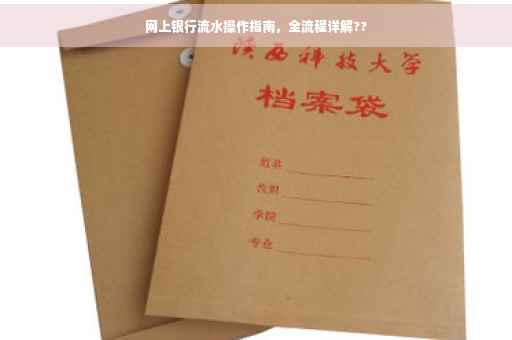 网上银行流水操作指南，全流程详解??
陕西科技大学
档案袋
学院
专业